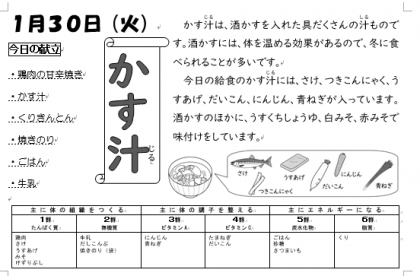 1月30日(火)
今日の献立
・鶏肉の甘辛焼き
・かす汁
・くりきんとん
・焼きのり
・ごはん
・牛乳
かす汁
じる
かす汁は、酒かすを入れた具だくさんの汁もので
す。酒かすには、体を温める効果があるので、冬に食
べられることが多いです。
今日の給食のかす汁には、さけ、つきこんにゃく、う
すあげ、だいこん、にんじん、青ねぎが入っています。
酒かすのほかに、うすくちしょうゆ、白みそ、赤みそで
味付けをしています。
さけ
うすあげ
にんじん
つきこんにゃく
だいこん
青ねぎ
主に体の組織をつくる
主に体の調子を整える
主にエネルギーになる
1群 2群 3群 4群 5群 6群
たんぱく質 無機質 ビタミンA ビタミンC 炭水化物 脂質
鶏肉 牛乳 にんじん たまねぎ ごはん くり
さけ だしこんぶ 青ねぎ だいこん 砂糖
うすあげ 焼きのり(袋) さつまいも
みそ
けずりぶし